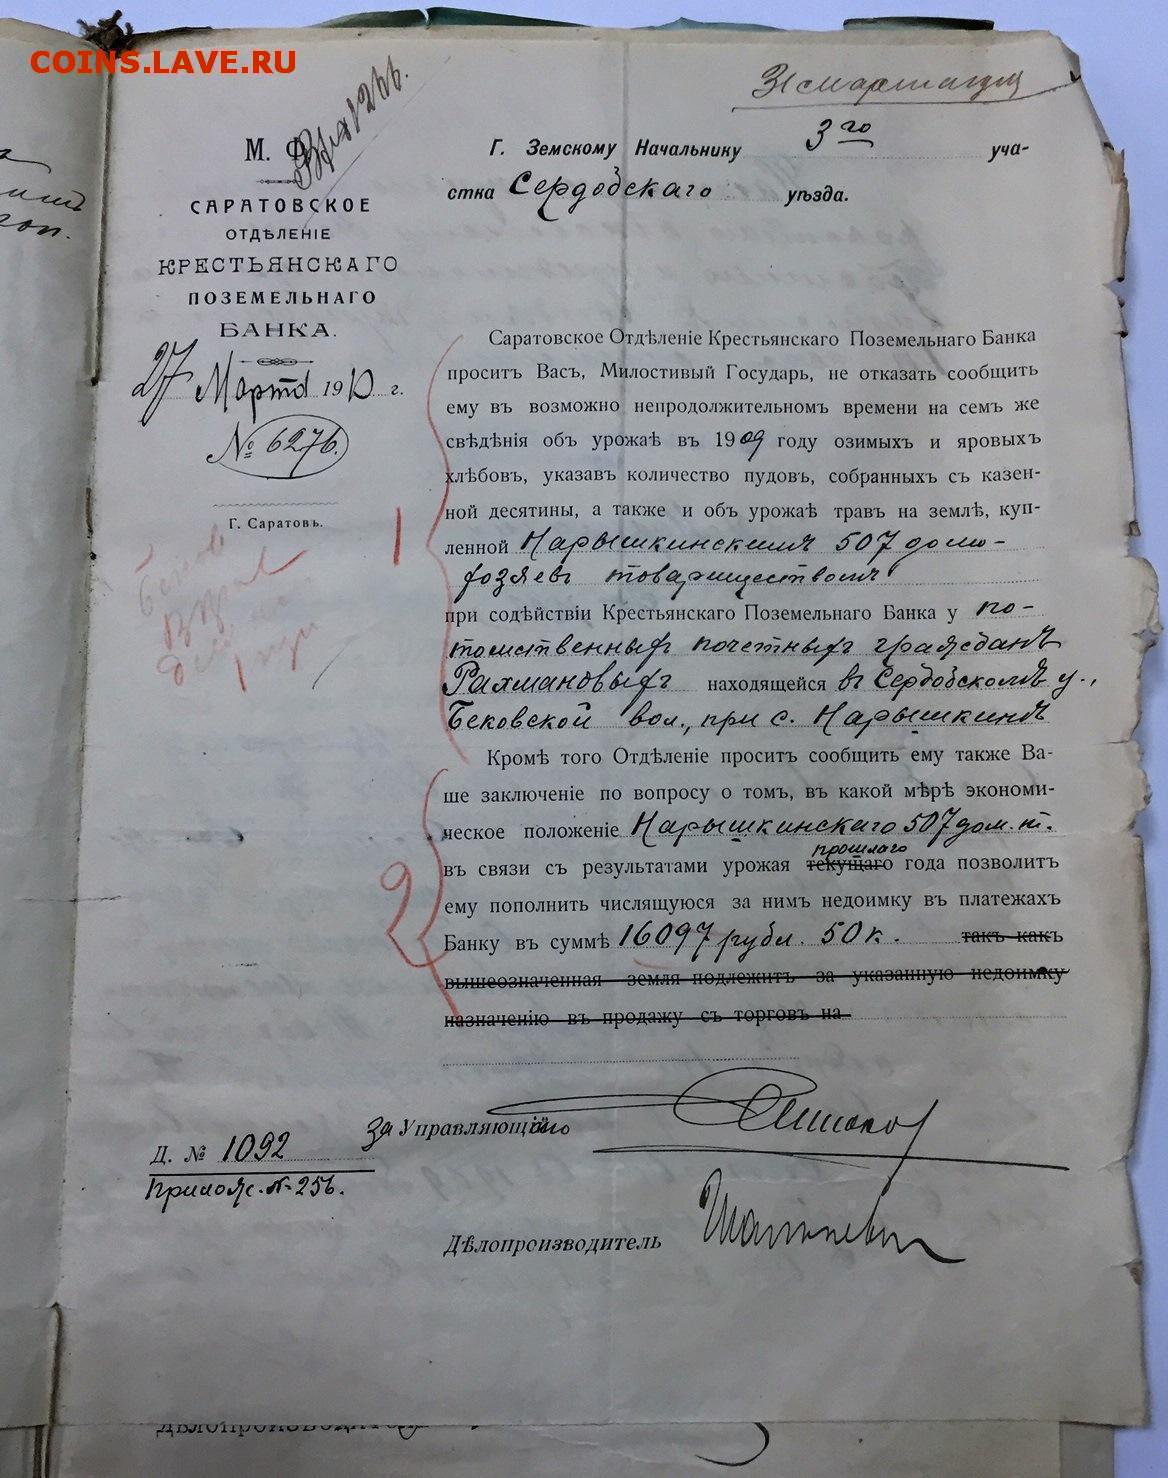 COINS.LAVE.RU
31 марта 1910
М. Ф.
САРАТОВСКОЕ
ОТДѢЛЕНІЕ
КРЕСТЬЯНСКАГО
ПОЗЕМЕЛЬНАГО
БАНКА.
27 Марта 1910 г.
№ 6276.
Г. Саратовъ.
Г. Земскому Начальнику 3го уча-
стка Сердобскаго уѣзда.
Саратовское Отдѣленіе Крестьянскаго Поземельнаго Банка
проситъ Васъ, Милостивый Государь, не отказать сообщить
ему въ возможно непродолжительномъ времени на семъ же
свѣдѣнія объ урожаѣ въ 1909 году озимыхъ и яровыхъ
хлѣбовъ, указавъ количество пудовъ, собранныхъ съ казен-
ной десятины, а также и объ урожаѣ травъ на землѣ, куп-
ленной Нарышкинскимъ 507 домо-
хозяевъ товариществомъ
при содѣйствіи Крестьянскаго Поземельнаго Банка у по-
томственныхъ почетныхъ гражданъ
Рахмановыхъ находящейся въ Сердобскомъ у.,
Бековской вол., при с. Нарышкинѣ
1
Кромѣ того Отдѣленіе проситъ сообщить ему также Ва-
ше заключеніе по вопросу о томъ, въ какой мѣрѣ экономи-
ческое положеніе Нарышкинскаго 507 дом. т.
прошлаго
въ связи съ результатами урожая текущаго года позволитъ
ему пополнить числящуюся за нимъ недоимку въ платежахъ
Банку въ суммѣ 16097 рубл. 50 к. такъ какъ
вышеозначенная земля подлежитъ за указанную недоимку
назначенію въ продажу съ торговъ на
2
За Управляющаго
Д. № 1092
Прилож. № 256.
Дѣлопроизводитель
Дѣлопроизводитель